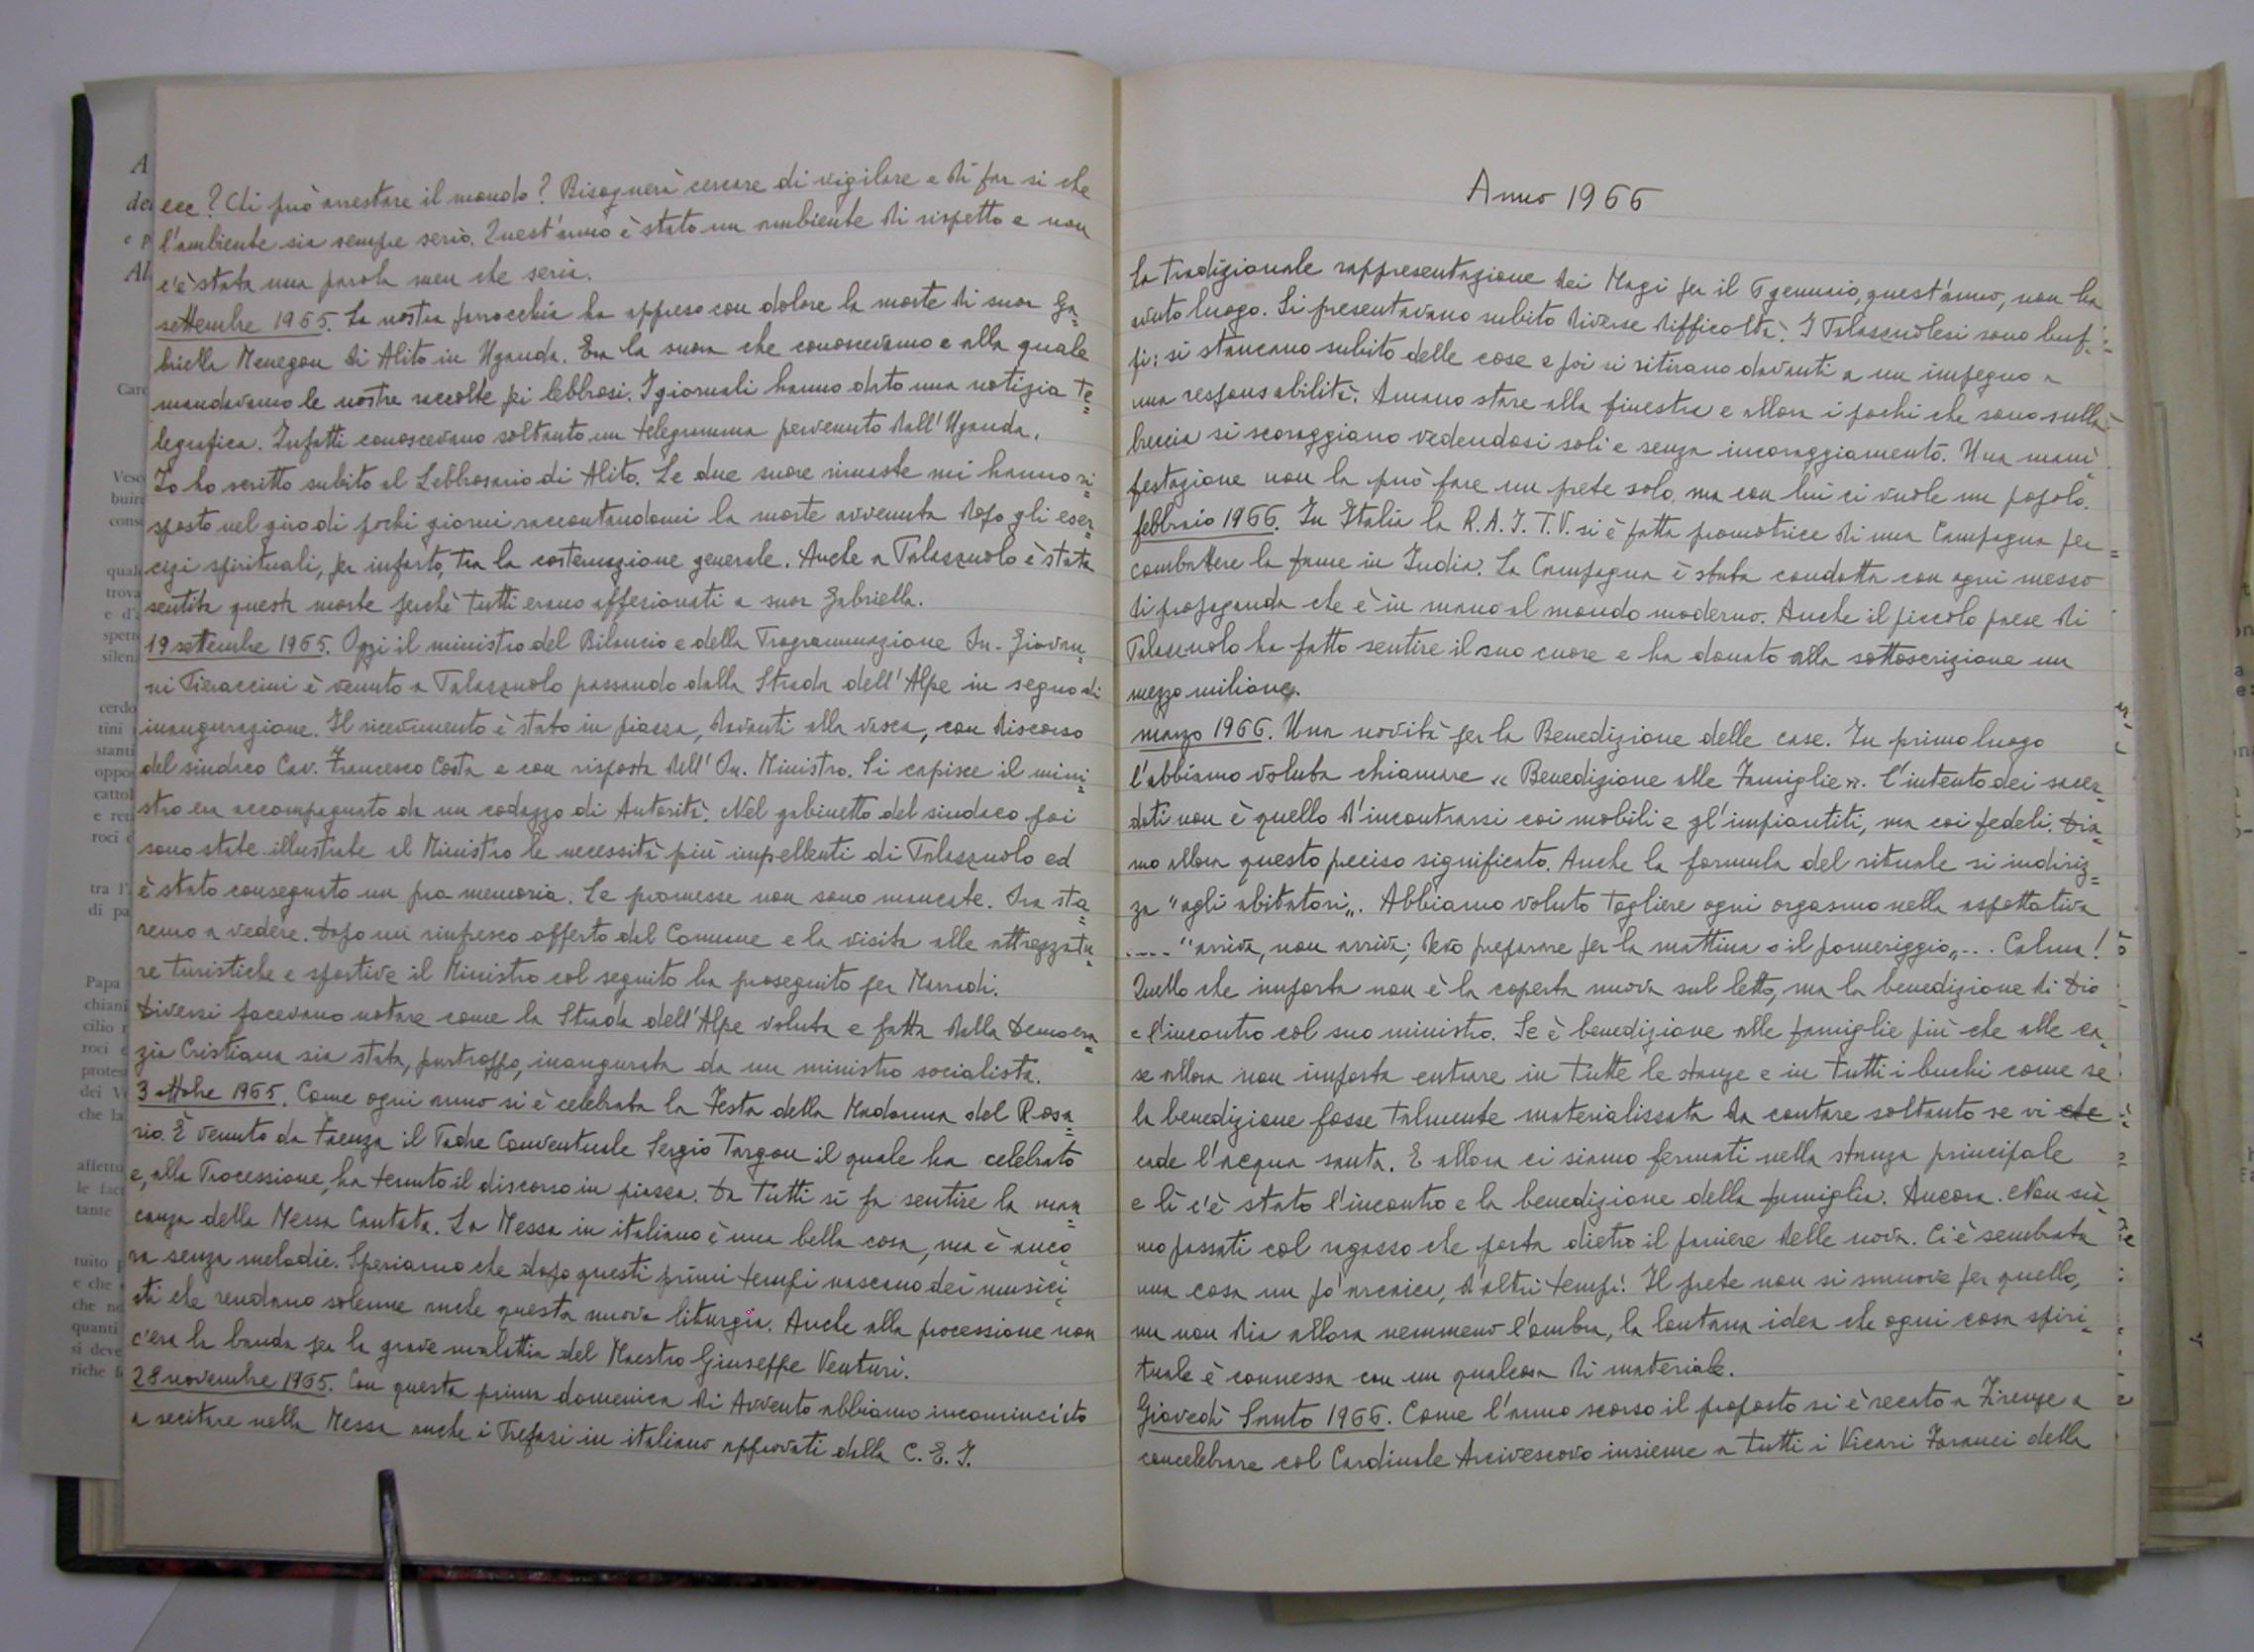 ecc? Chi può arrestare il mondo? Bisognerà cercare di vigilare e di far si che
l'ambiente sia sempre serio. Quest'anno è stato un ambiente di rispetto e non
c'è stata una parola men che seria.
settembre 1965. La nostra parrocchia ha appreso con dolore la morte di suor Ga=
briella Menegon di Alito in Uganda. Era la suora che conoscevamo e alla quale
mandavamo le nostre raccolte pei lebbrosi. I giornali hanno dato una notizia te=
legrafica. Infatti conoscevano soltanto un telegramma pervenuto dall'Uganda.
Io ho scritto subito al Lebbrosario di Alito. Le due suore rimaste mi hanno ri=
sposto nel giro di pochi giorni raccontandomi la morte avvenuta dopo gli eser=
cizi spirituali, per infarto, tra la costernazione generale. Anche a Palazzuolo è stata
sentita questa morte perchè tutti erano affezionati a suor Gabriella.
19 settembre 1965. Oggi il ministro del Bilancio e della Programmazione On. Giovan=
ni Pieraccini è venuto a Palazzuolo passando dalla Strada dell'Alpe in segno di
inaugurazione. Il ricevimento è stato in piazza, davanti alla vasca, con discorso
del sindaco Cav. Francesco Costa e con risposta dell'On. Ministro. Si capisce il mini=
stro era accompagnato da un codazzo di Autorità. Nel gabinetto del sindaco poi
sono state illustrate al Ministro le necessità più impellenti di Palazzuolo ed
è stato consegnato un pro memoria. Le promesse non sono mancate. Ora sta=
remo a vedere. Dopo un rinfresco offerto dal Comune e la visita alle attrezzatu=
re turistiche e sportive il Ministro col seguito ha proseguito per Marradi.
Diversi facevano notare come la Strada dell'Alpe voluta e fatta dalla Democra=
zia Cristiana sia stata, purtroppo, inaugurata da un ministro socialista.
3 ottobre 1965. Come ogni anno si è celebrata la Festa della Madonna del Rosa=
rio. È venuto da Faenza il Padre Conventuale Sergio Targon il quale ha celebrato
e, alla Processione, ha tenuto il discorso in piazza. Da tutti si fa sentire la man=
canza della Messa Cantata. La Messa in italiano è una bella cosa, ma è anco=
ra senza melodie. Speriamo che dopo questi primi tempi nascano dei musici=
sti che rendano solenne anche questa nuova liturgia. Anche alla processione non
c'era la banda per la grave malattia del Maestro Giuseppe Venturi.
28 novembre 1965. Con questa prima domenica di Avvento abbiamo incominciato
a recitare nella Messa anche i Prefazi in italiano approvati dalla C. E. I.
Anno 1966
La tradizionale rappresentazione dei Magi per il 6 gennaio, quest'anno, non ha
avuto luogo. Si presentavano subito diverse difficoltà. I Palazzuolesi sono buf=
fi: si stancano subito delle cose e poi si ritirano davanti a un impegno a
una responsabilità. Amano stare alla finestra e allora i pochi che sono sulla
breccia si scoraggiano vedendosi soli e senza incoraggiamento. Una mani=
festazione non la può fare un prete solo, ma con lui ci vuole un popolo.
febbraio 1966. In Italia la R.A.I. T.V. si è fatta promotrice di una Campagna per
combattere la fame in India. La Campagna è stata condotta con ogni mezzo
di propaganda che è in mano al mondo moderno. Anche il piccolo paese di
Palazzuolo ha fatto sentire il suo cuore e ha donato alla sottoscrizione un
mezzo milione.
marzo 1966. Una novità per la Benedizione delle case. In primo luogo
l'abbiamo voluta chiamare « Benedizione alle Famiglie ». L'intento dei sacer=
doti non è quello d'incontrarsi coi mobili e gl'impiantiti, ma coi fedeli. Dia=
mo allora questo preciso significato. Anche la formula del rituale si indiriz=
za "agli abitatori". Abbiamo voluto togliere ogni orgasmo nella aspettativa
.... "arriva, non arriva; devo preparare per la mattina o il pomeriggio"... Calma!
Quello che importa non è la coperta nuova sul letto, ma la benedizione di Dio
e l'incontro col suo ministro. Se è benedizione alle famiglie più che alle ca=
se allora non importa entrare in tutte le stanze e in tutti i buchi come se
la benedizione fosse talmente materializzata da contare soltanto se vi
cade l'acqua santa. E allora ci siamo fermati nella stanza principale
e lì c'è stato l'incontro e la benedizione della famiglia. Ancora. Non sia=
mo passati col ragazzo che porta dietro il paniere delle uova. Ci è sembrata
una cosa un po' arcaica, d'altri tempi. Il prete non si smuove per quello,
ma non dia allora nemmeno l'ombra, la lontana idea che ogni cosa spiri=
tuale è connessa con un qualcosa di materiale.
Giovedì Santo 1966. Come l'anno scorso il proposto si è recato a Firenze a
concelebrare col Cardinale Arcivescovo insieme a tutti i Vicari Foranei della